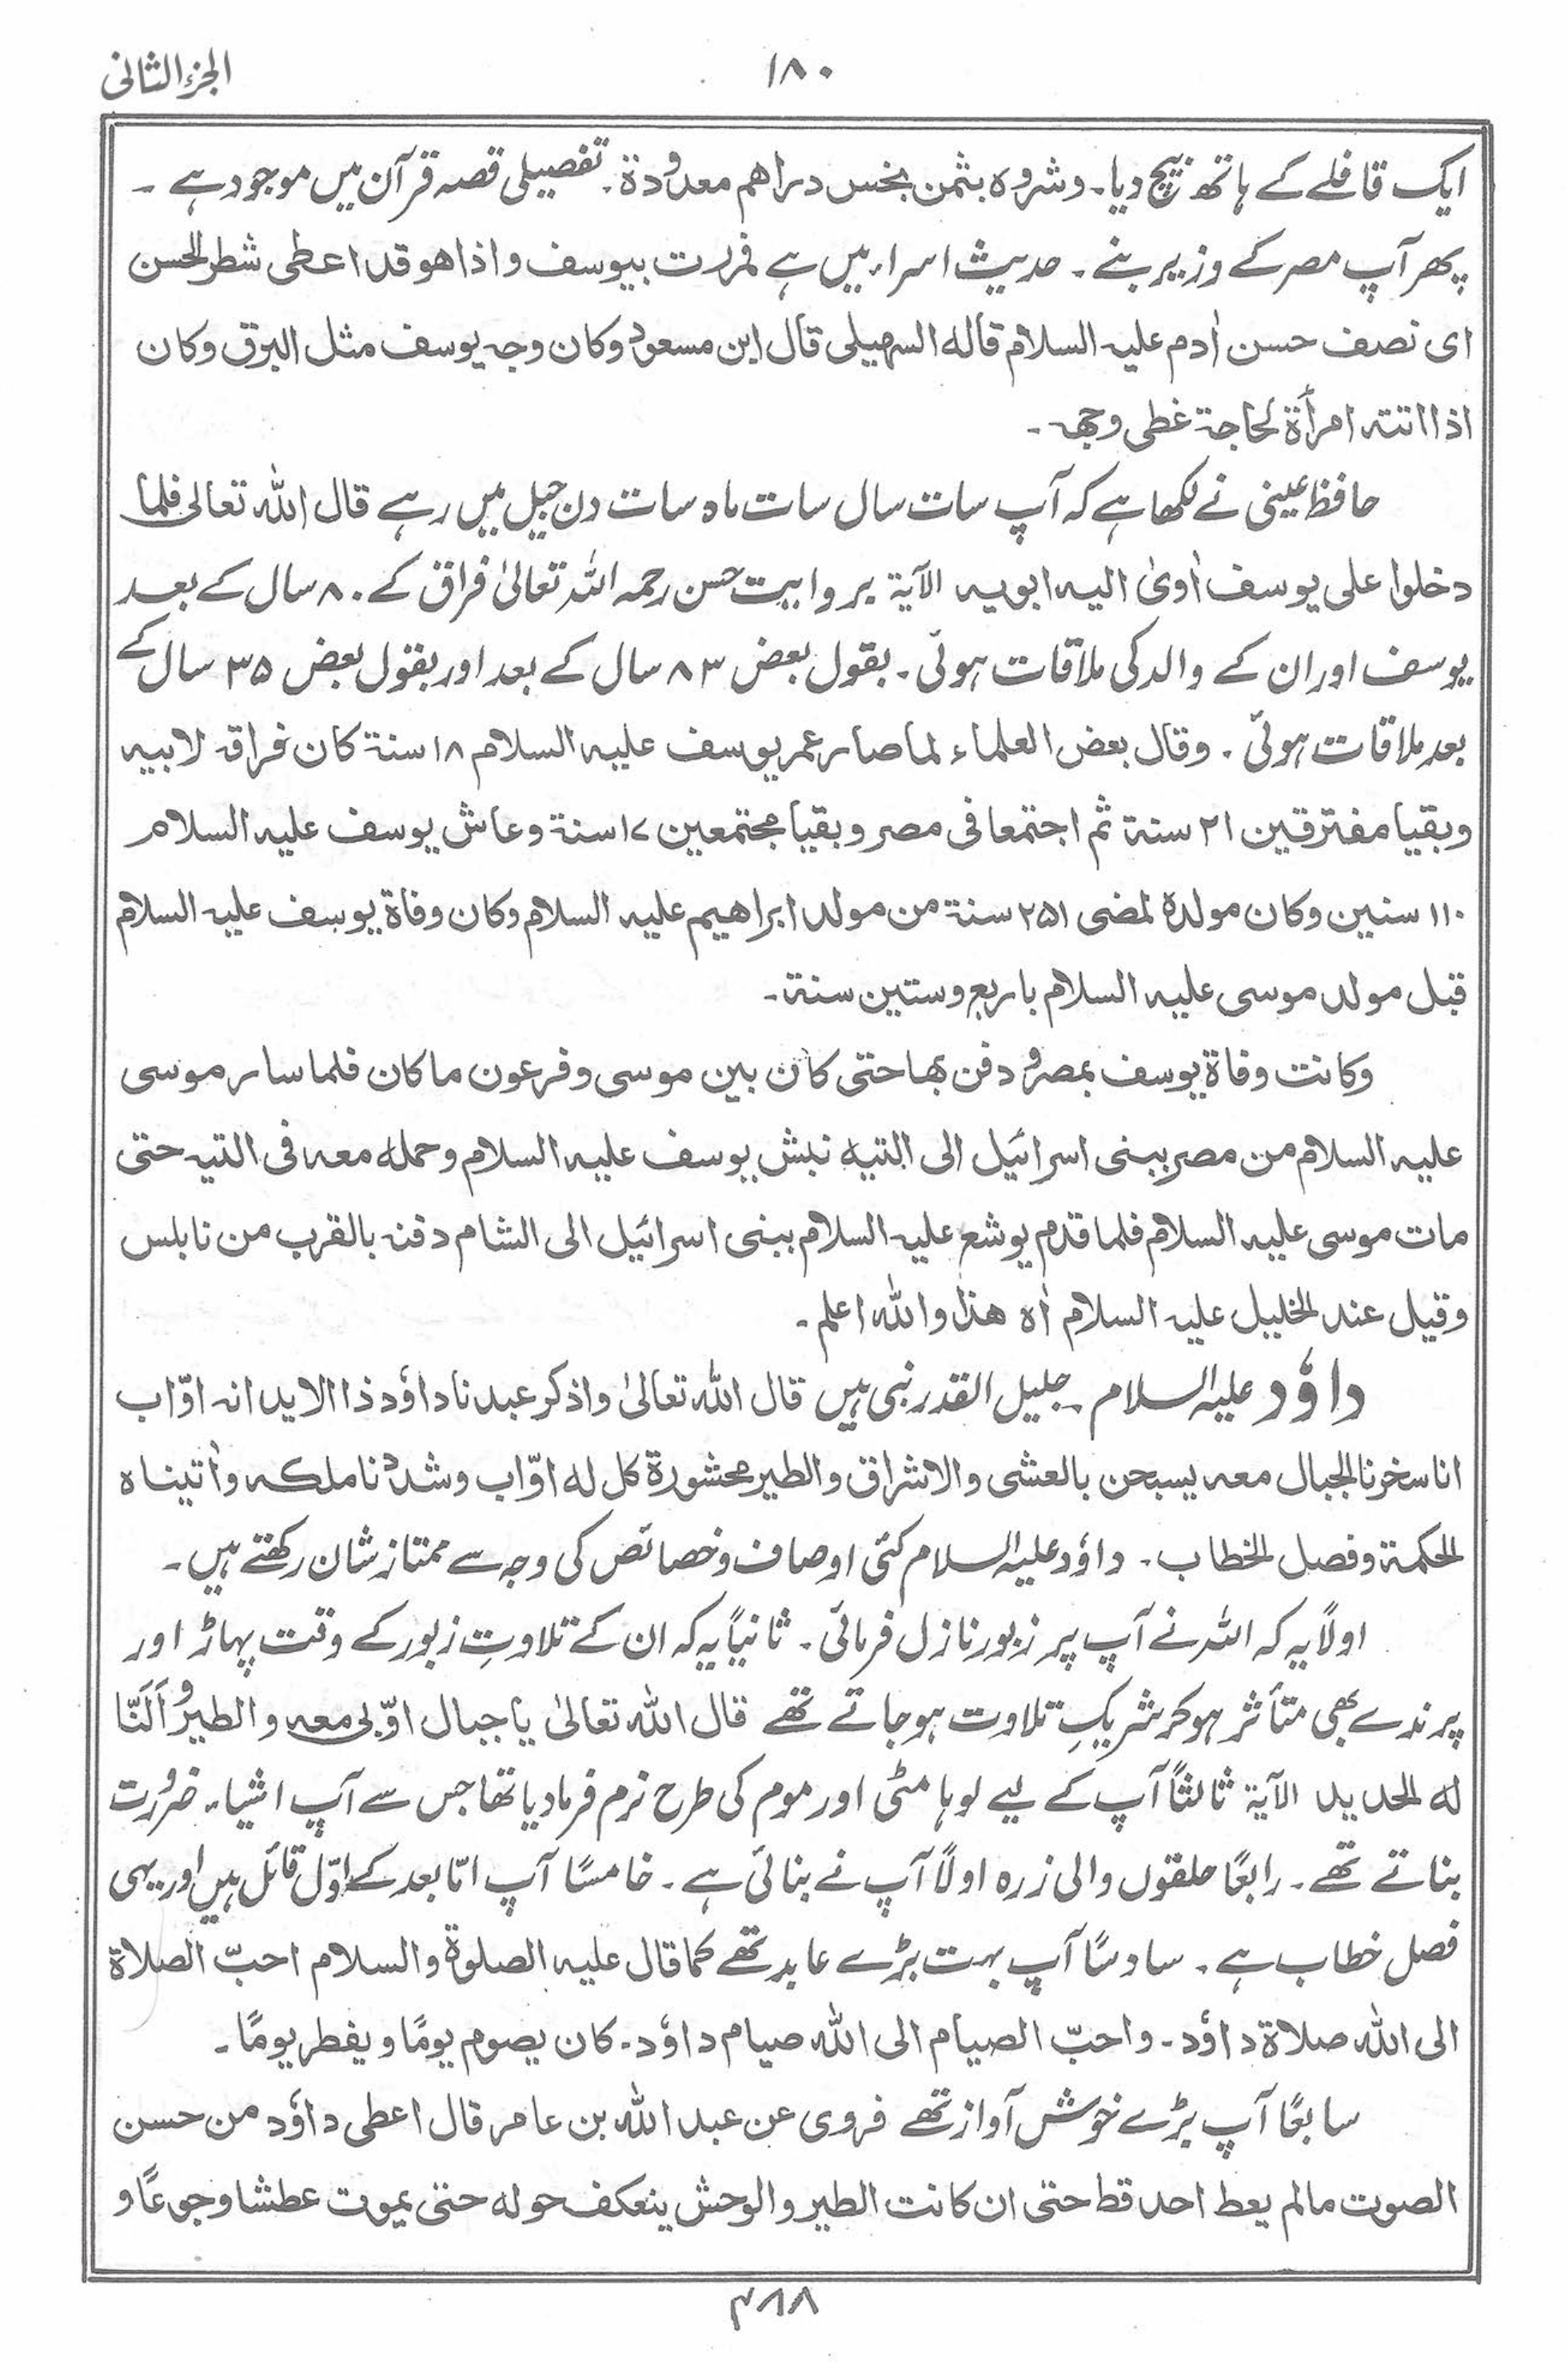 الجزء الثانی
۱۸۰
ایک قافلے کے ہاتھ بیچ دیا۔ وشروہ بثمن بخس دراھم معدودة۔ تفصیلی قصہ قرآن میں موجود ہے ۔
پھر آپ مصر کے وزیر بنے ۔ حدیث اسراء میں ہے فمررت بیوسف واذا ھو قد اعطی شطر الحسن
ای نصف حسن اٰدم علیہ السلام قالہ السہیلی قال ابن مسعودؓ وکان وجہ یوسف مثل البرق وکان
اذا اتتہ امرأة لحاجة غطی وجھہ ۔
حافظ عینی نے لکھا ہے کہ آپ سات سال سات ماہ سات دن جیل میں رہے قال اللہ تعالی فلما
دخلوا علی یوسف اٰویٰ الیہ ابویہ الآیة بروایت حسن رحمہ اللہ تعالیٰ فراق کے ۸۰ سال کے بعد
یوسف اور ان کے والد کی ملاقات ہوئی۔ بقول بعض ۸۳ سال کے بعد اور بقول بعض ۳۵ سال کے
بعد ملاقات ہوئی ۔ وقال بعض العلماء لما صار عمر یوسف علیہ السلام ۱۸ سنة کان فراقہ لابیہ
وبقیا مفترقین ۲۱ سنة ثم اجتمعا فی مصر وبقیا مجتمعین ۱۷ سنة وعاش یوسف علیہ السلام
۱۱۰ سنین وکان مولدہ لمضی ۲۵۱ سنة من مولد ابراھیم علیہ السلام وکان وفاة یوسف علیہ السلام
قبل مولد موسی علیہ السلام باربع وستین سنة۔
وکانت وفاة یوسف بمصر ودفن بھا حتی کان بین موسی وفرعون ماکان فلما سار موسی
علیہ السلام من مصر ببنی اسرائیل الی التیہ نبش یوسف علیہ السلام وحملہ معہ فی التیہ حتی
مات موسی علیہ السلام فلما قدم یوشع علیہ السلام ببنی اسرائیل الی الشام دفنہ بالقرب من نابلس
وقیل عند الخلیل علیہ السلام اٰہ ھذا واللہ اعلم ۔
داؤد علیہ السلام ۔ جلیل القدر نبی ہیں قال اللہ تعالیٰ واذکر عبدنا داؤد ذا الاید انہ اوّاب
انا سخرنا الجبال معہ یسبحن بالعشی والاشراق والطیر محشورة کل لہ اوّاب وشددنا ملکہ واٰتیناہ
الحکمة وفصل الخطاب ۔ داؤد علیہ السلام کئی اوصاف وخصائص کی وجہ سے ممتاز شان رکھتے ہیں ۔
اولاً یہ کہ اللہ نے آپ پر زبور نازل فرمائی ۔ ثانیاً یہ کہ ان کے تلاوتِ زبور کے وقت پہاڑ اور
پرندے بھی متأثر ہو کر شریکِ تلاوت ہو جاتے تھے قال اللہ تعالیٰ یاجبال اوّبی معہ والطیرُ وَاَلَنَّا
لہ الحدید الآیة ثالثاً آپ کے لیے لوہا مٹی اور موم کی طرح نرم فرما دیا تھا جس سے آپ اشیاء ضرورت
بناتے تھے ۔ رابعًا حلقوں والی زرہ اولاً آپ نے بنائی ہے ۔ خامسًا آپ امّا بعد کے اوّل قائل ہیں اور یہی
فصل خطاب ہے ۔ سادسًا آپ بہت بڑے عابد تھے کما قال علیہ الصلوة والسلام احبّ الصلاة
الی اللہ صلاة داؤد ۔ واحبّ الصیام الی اللہ صیام داؤد ۔ کان یصوم یومًا ویفطر یومًا ۔
سابعًا آپ بڑے خوش آواز تھے فروی عن عبد اللہ بن عامر قال اعطی داؤد من حسن
الصوت مالم یعط احد قط حتی ان کانت الطیر والوحش ینعکف حولہ حتی یموت عطشا وجوعًا و
۴۸۸